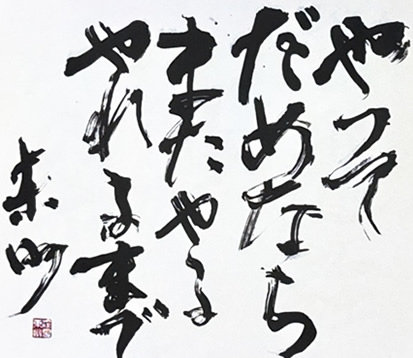 やって
だめなら
またやる
やれるまで